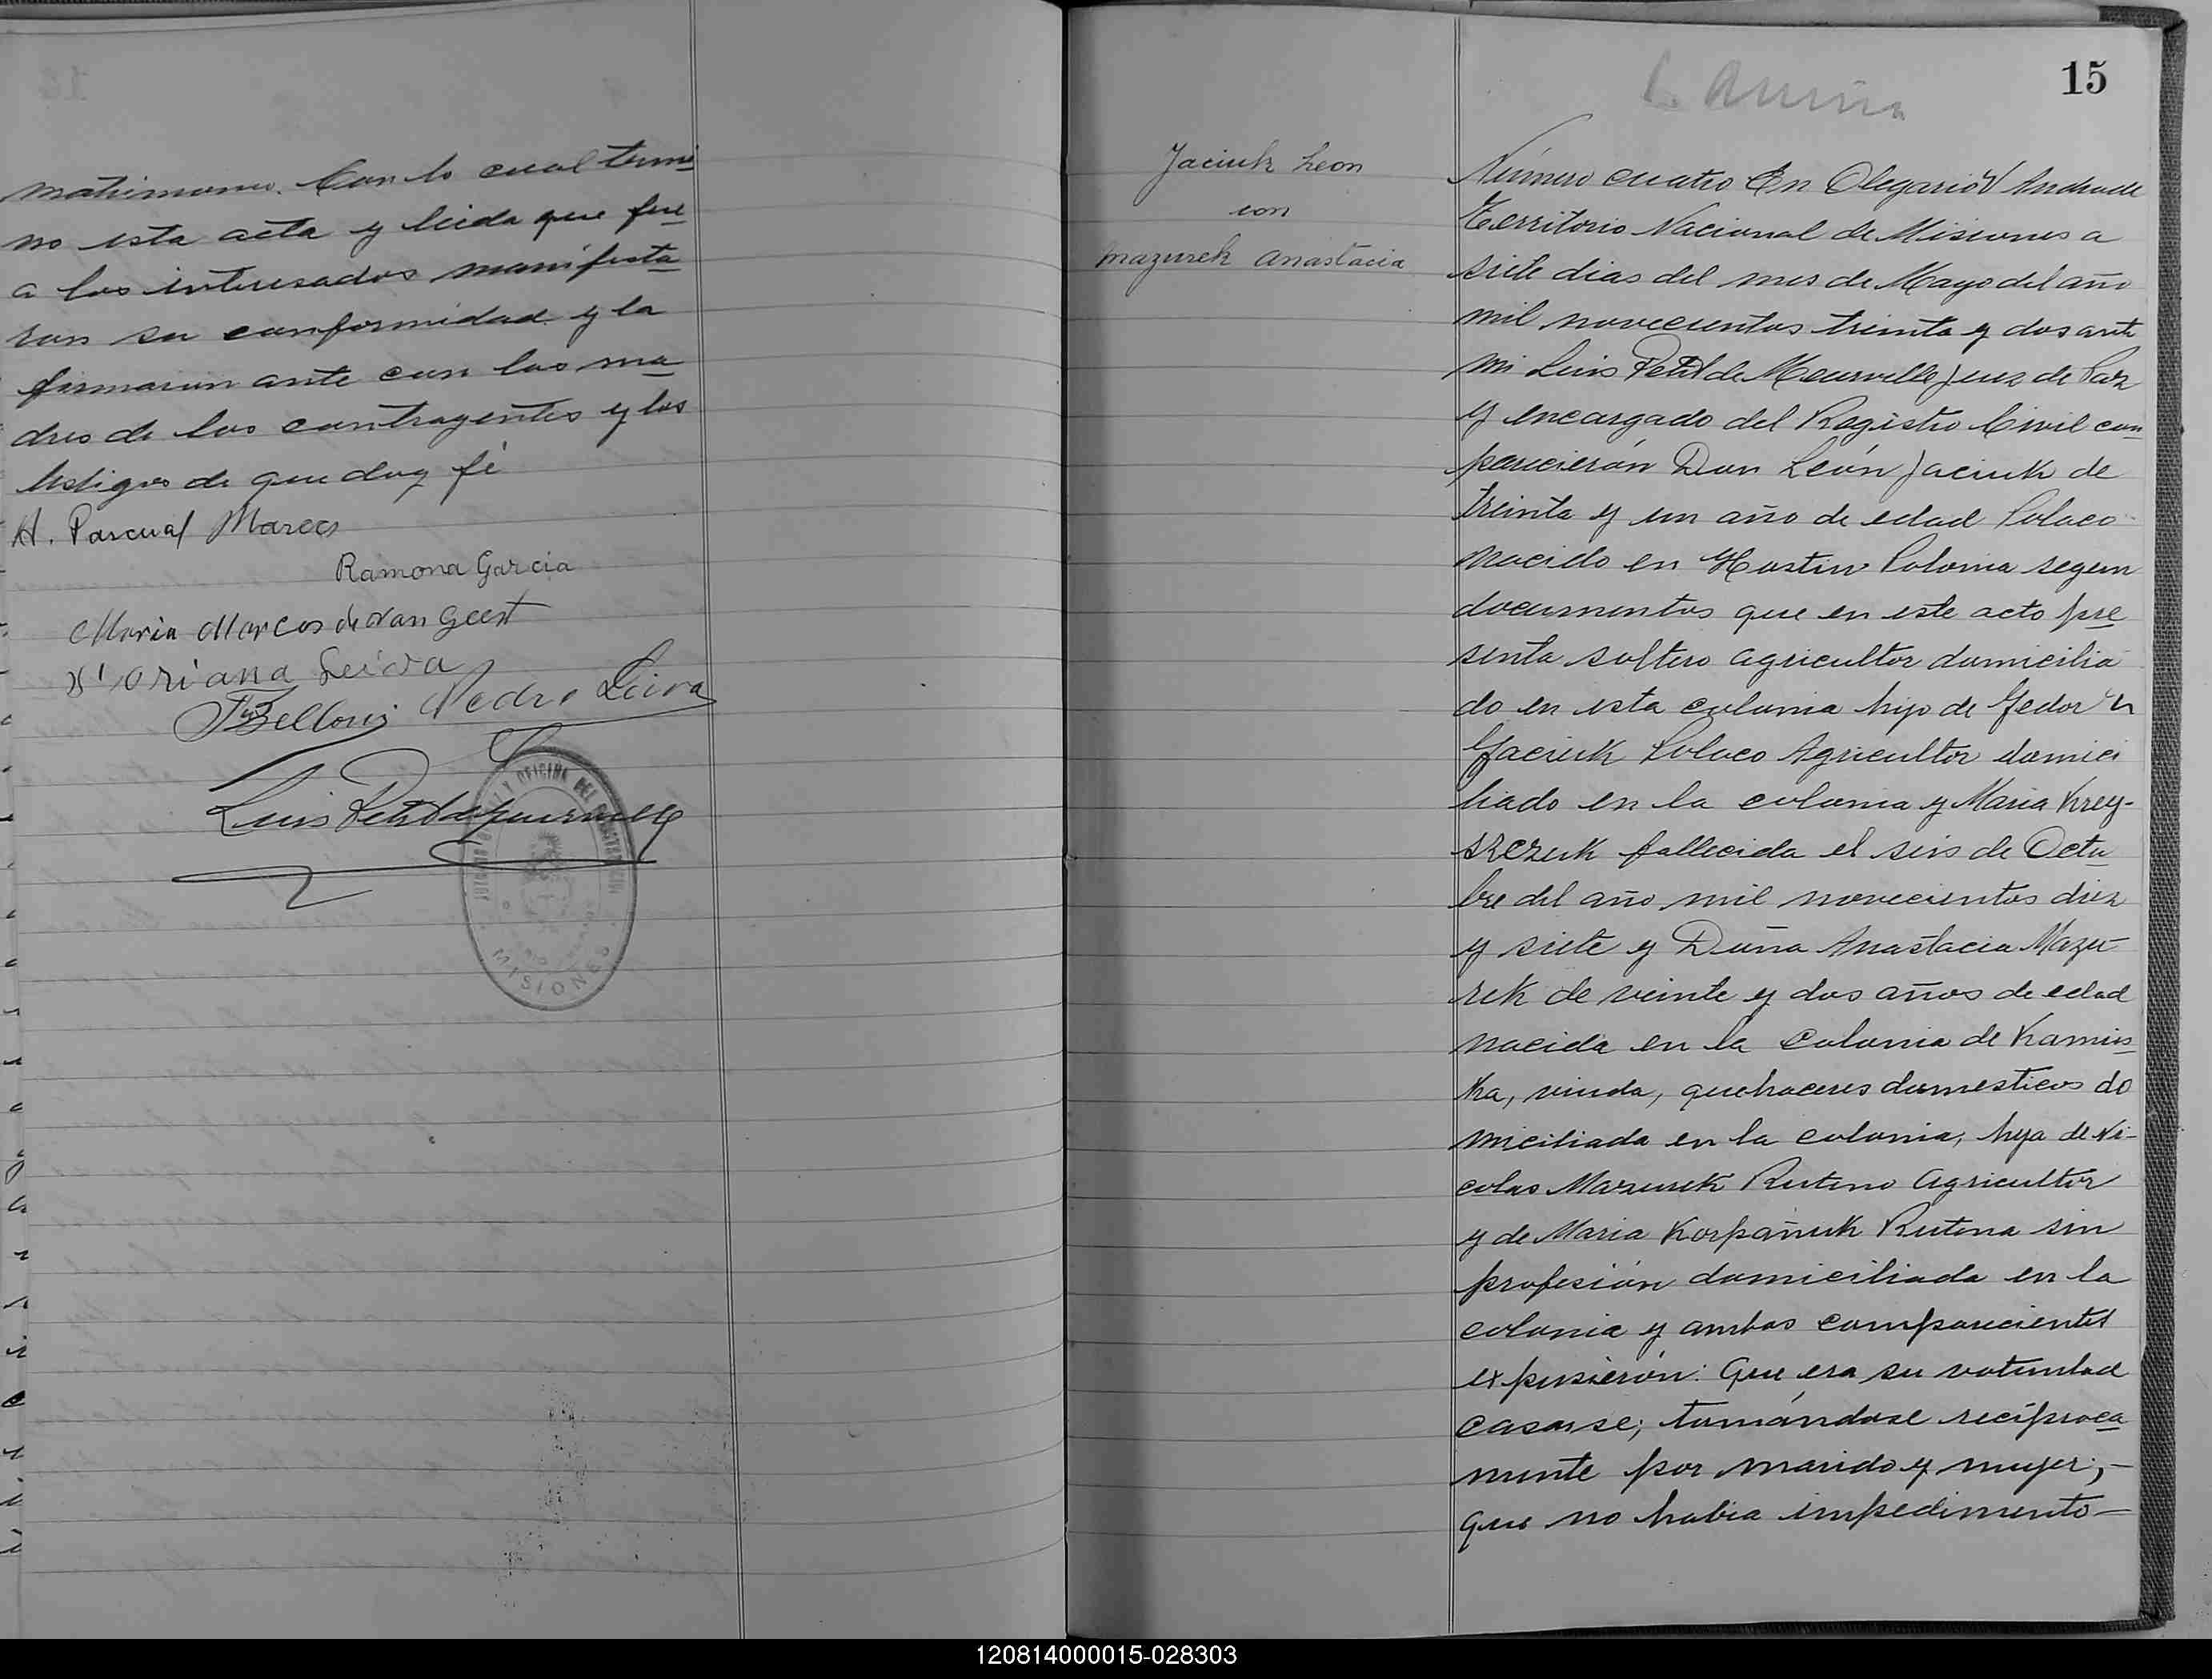 matrimonio. Con lo cual termi
no esta acta y leida que fue
a los interesados manifesta
ron su conformidad y la
firmaron ante con los ma
dres de los contrayentes y los
testigos de que doy fé
A. Pascual Marcos
Ramona Garcia
Maria Marcos de Van Geest
Oriana Leiva
Bellony Pedro Leiva
Luis Petit de Meurville
OFICINA DEL REGISTRO
MISIONES
15
Jaciuk Leon
con
Mazurek Anastacia
Número cuatro En Olegario V Andrade
Territorio Nacional de Misiones a
siete dias del mes de Mayo del año
mil novecientos treinta y dos ante
mi Luis Petit de Meurville Juez de Paz
y encargado del Registro Civil com
parecierón Don León Jaciuk de
treinta y un año de edad Polaco
nacido en Hustin Polonia segun
documentos que en este acto pre
senta soltero agricultor domicilia
do en esta colonia hijo de Fedor
Jaciuk Polaco Agricultor domici
liado en la colonia y Maria Krey-
szczuk fallecida el seis de Octu
bre del año mil novecientos diez
y siete y Doña Anastacia Mazu-
rek de veinte y dos años de edad
nacida en la Colonia de Kamins
ka, viuda, quehaceres domesticos do
miciliada en la colonia, hija de Ni-
colas Mazurek Ruteno Agricultor
y de Maria Korpañuk Rutena sin
profesión domiciliada en la
colonia y ambos comparecientes
expusierón: Que era su voluntad
casarse; tomándose recíproca
mente por marido y mujer;-
que no habia impedimento-
120814000015-028303